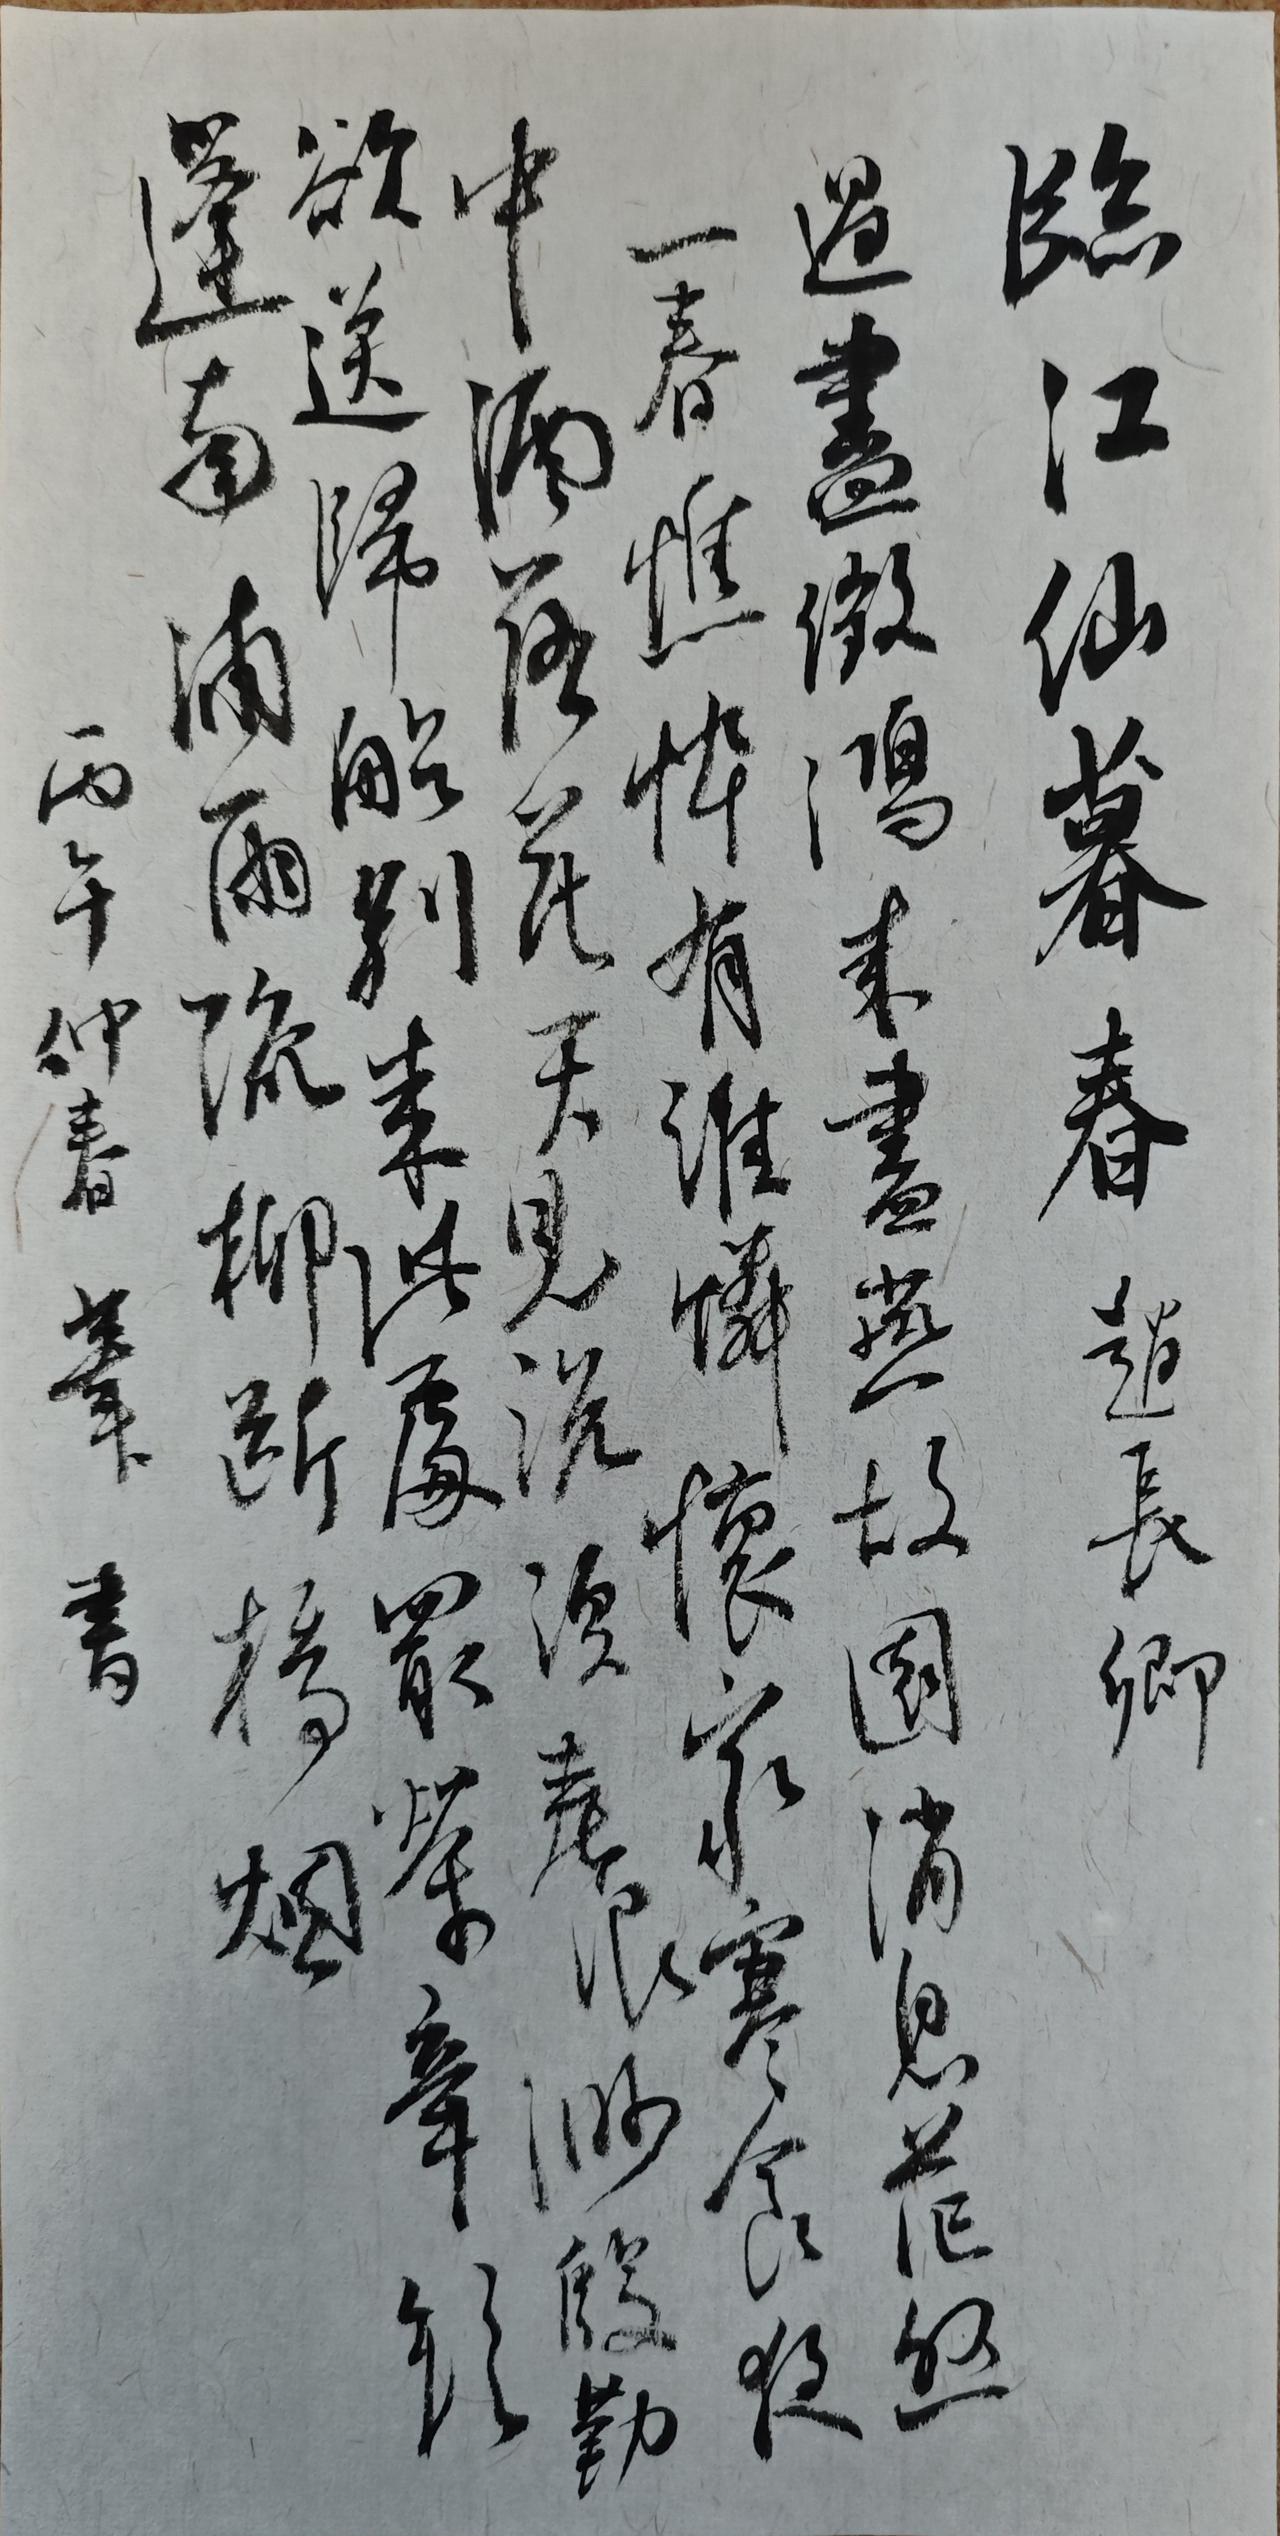 臨江仙暮春 趙長卿
過盡徵鴻来盡燕故園消息茫然
一春憔悴有誰憐懷家寒食夜
中酒落花天見説春浪渺殷勤
欲送歸船别来此處最縈牵短
篷南浦雨疏柳断橋烟
丙午仲春 書